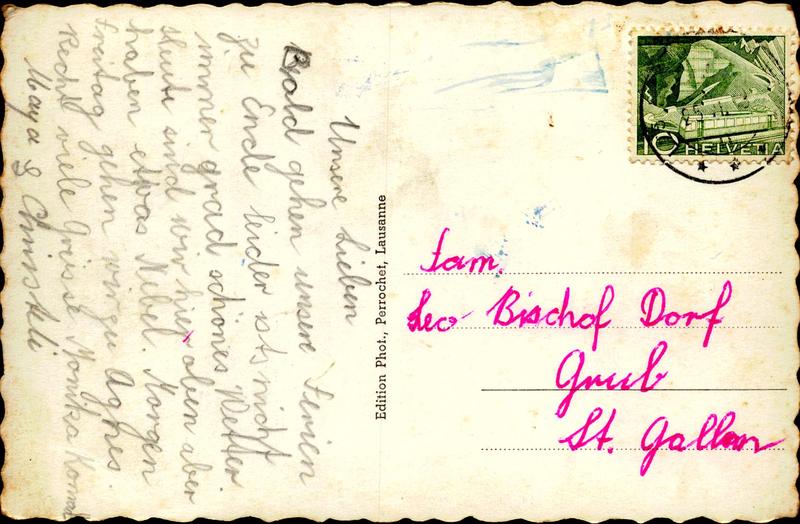 Unsere Lieben
Bald gehen unsere Ferien
zu Ende leider ist nicht
immer grad schönes Wetter.
Heute sind wir hey oben aber
haben etwas Nebel. Morgen
Freitag gehen wir zu Agnes.
Recht viele Grüsse Monika Konrad
Maya & Christeli
Edition Phot., Perrochet, Lausanne
10 HELVETIA
Fam.
Leo Bischof Dorf
Grub
St. Gallen